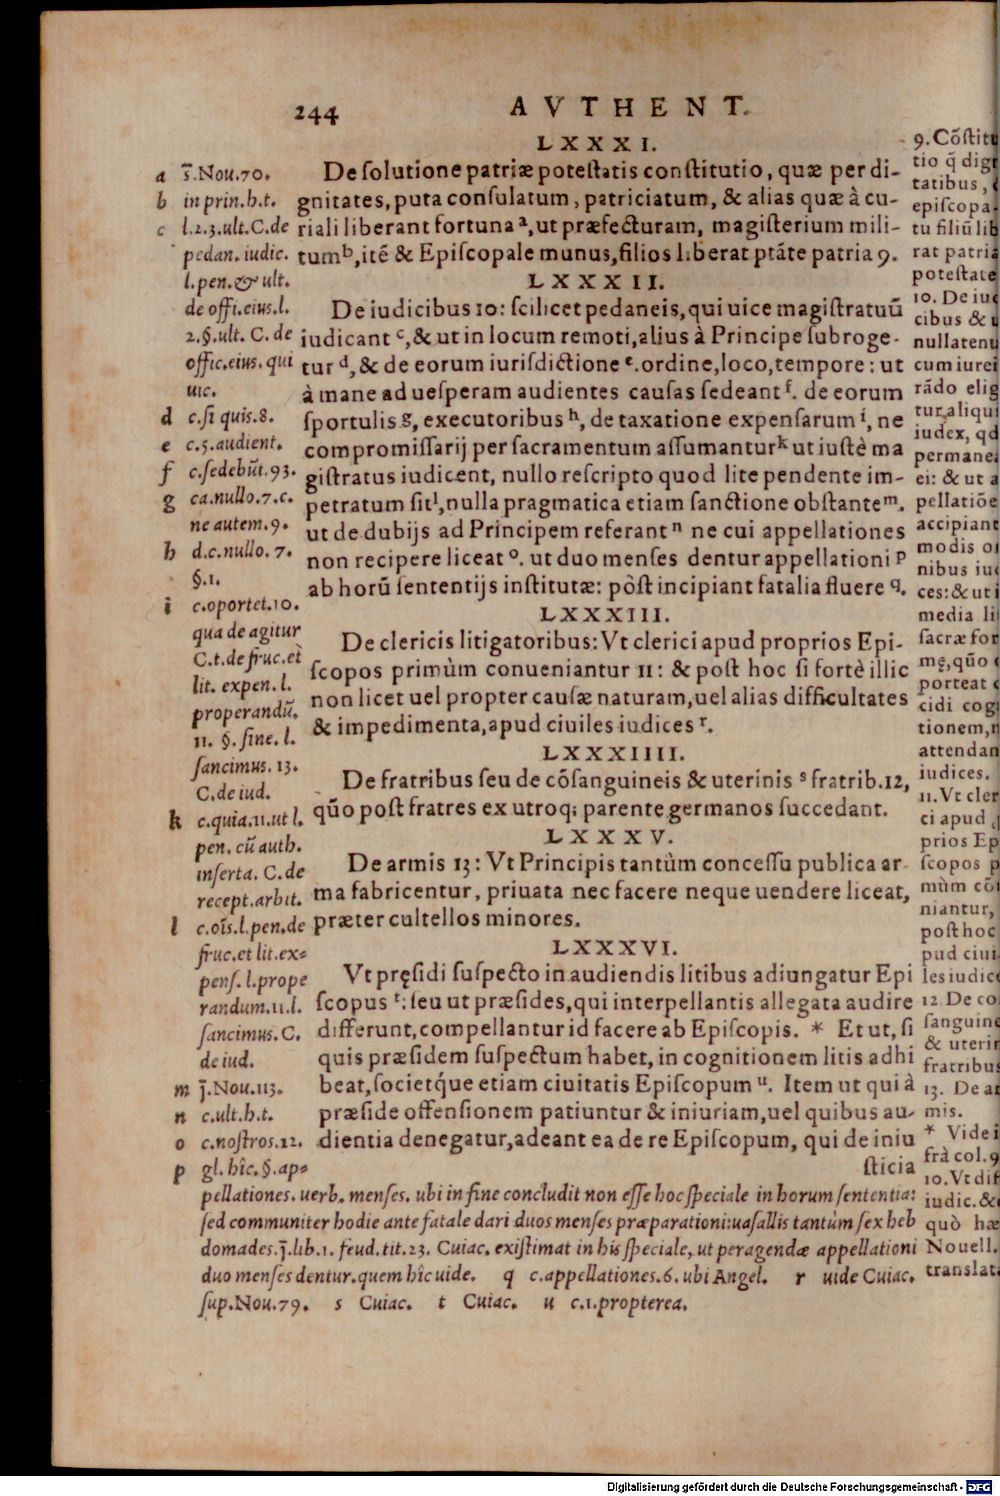 244 AVTHENT.
LXXXI.
De ſolutione patriæ poteſtatis conſtitutio, quæ per di-
gnitates, puta conſulatum, patriciatum, & alias quæ à cu-
riali liberant fortuna a, ut præfecturam, magiſterium mili-
tum b, itē & Epiſcopale munus, filios liberat ptāte patria 9.
LXXXII.
De iudicibus 10: ſcilicet pedaneis, qui uice magiſtratuū
iudicant c, & ut in locum remoti, alius à Principe ſubroge-
tur d, & de eorum iuriſdictione e. ordine, loco, tempore: ut
à mane ad ueſperam audientes cauſas ſedeant f. de eorum
ſportulis g, executoribus h, de taxatione expenſarum i, ne
compromiſſarij per ſacramentum aſſumantur k ut iuſtè ma
giſtratus iudicent, nullo reſcripto quod lite pendente im-
petratum ſit l, nulla pragmatica etiam ſanctione obſtante m.
ut de dubijs ad Principem referant n ne cui appellationes
non recipere liceat o. ut duo menſes dentur appellationi p
ab horū ſententijs inſtitutæ: pòſt incipiant fatalia fluere q.
LXXXIII.
De clericis litigatoribus: Vt clerici apud proprios Epi-
ſcopos primùm conueniantur 11: & poſt hoc ſi fortè illic
non licet uel propter cauſæ naturam, uel alias difficultates
& impedimenta, apud ciuiles iudices r.
LXXXIIII.
De fratribus ſeu de cōſanguineis & uterinis s fratrib. 12,
quō poſt fratres ex utroq; parente germanos ſuccedant.
LXXXV.
De armis 13: Vt Principis tantùm conceſſu publica ar-
ma fabricentur, priuata nec facere neque uendere liceat,
præter cultellos minores.
LXXXVI.
Vt pręſidi ſuſpecto in audiendis litibus adiungatur Epi
ſcopus t: ſeu ut præſides, qui interpellantis allegata audire
differunt, compellantur id facere ab Epiſcopis. * Et ut, ſi
quis præſidem ſuſpectum habet, in cognitionem litis adhi
beat, ſocietq́ue etiam ciuitatis Epiſcopum u. Item ut qui à
præſide offenſionem patiuntur & iniuriam, uel quibus au-
dientia denegatur, adeant ea de re Epiſcopum, qui de iniu
ſticia
a ſ̄. Nou. 70.
b in prin. h. t.
c l. 2. 3. ult. C. de
pedan. iudic.
l. pen. & ult.
de offi. eius. l.
2. §. ult. C. de
offic. eius. qui
uic.
d c. ſi quis. 8.
e c. 5. audient.
f c. ſedebūt. 93.
g ca. nullo. 7. c.
ne autem. 9.
h d. c. nullo. 7.
§. 1.
i c. oportet. 10.
qua de agitur
C. t. de fruc. et
lit. expen. l.
properandū.
11. §. ſine. l.
ſancimus. 13.
C. de iud.
k c. quia. 11. ut l.
pen. cū auth.
inſerta. C. de
recept. arbit.
l c. oīs. l. pen. de
fruc. et lit. ex-
penſ. l. prope
randum. 11. l.
ſancimus. C.
de iud.
m j̄. Nou. 113.
n c. ult. h. t.
o c. noſtros. 12.
p gl. hîc. §. ap-
pellationes. uerb. menſes. ubi in fine concludit non eſſe hoc ſpeciale in horum ſententia:
ſed communiter hodie ante fatale dari duos menſes præparationi: uaſallis tantùm ſex heb
domades. j̄. lib. 1. feud. tit. 23. Cuiac. exiſtimat in his ſpeciale, ut peragendæ appellationi
duo menſes dentur. quem hîc uide. q c. appellationes. 6. ubi Angel. r uide Cuiac.
ſup. Nou. 79. s Cuiac. t Cuiac. u c. 1. propterea.
9. Cōſtitu
tio q̄ dig
tatibus,
epiſcopa-
tu filiū lib
rat patria
poteſtate
10. De iu
cibus & u
nullatenu
cum iurei
rādo elig
tur aliqui
iudex, qd
permane
ei: & ut a
pellatiōe
accipiant
modis o
nibus iu
ces: & ut i
media li
ſacræ for
mę, quō
porteat
cidi cog
tionem, n
attendan
iudices.
11. Vt cler
ci apud
prios Ep
ſcopos p
mùm cō
niantur,
poſt hoc
pud ciui
les iudic
12. De co
ſanguine
& uterin
fratribus
13. De ar
mis.
* Vide i
frà col. 9
10. Vt dif
iudic. &
quò hæ
Nouell.
translat
Digitalisierung gefördert durch die Deutsche Forschungsgemeinschaft - DFG